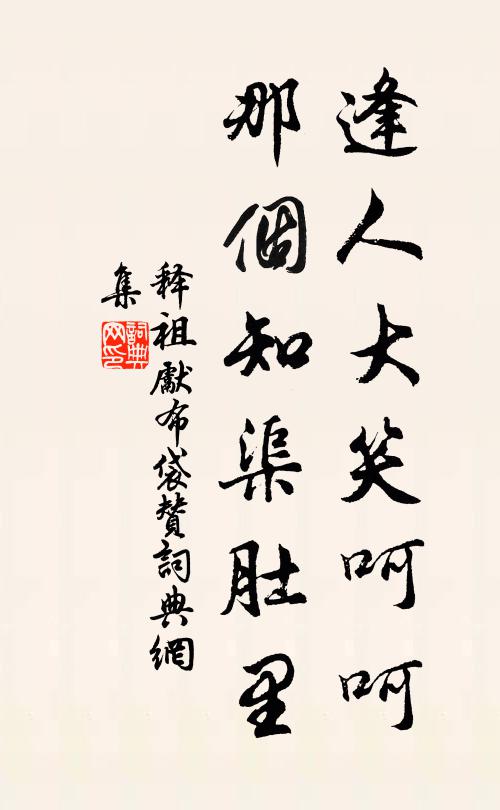 逢人大笑呵呵
那個知渠肚里
释祖獻布袋赞詞典網
集
詞典
网印